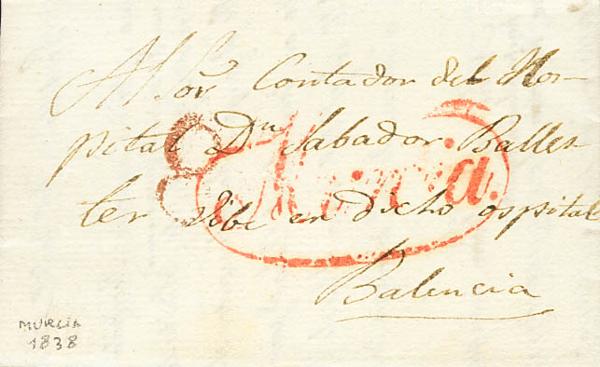 Al Sor Contador del Hos-
pital Dn Sabador Balles-
ter vibe en dicho ospital
Balencia
8
Murcia.
MURCIA
1838